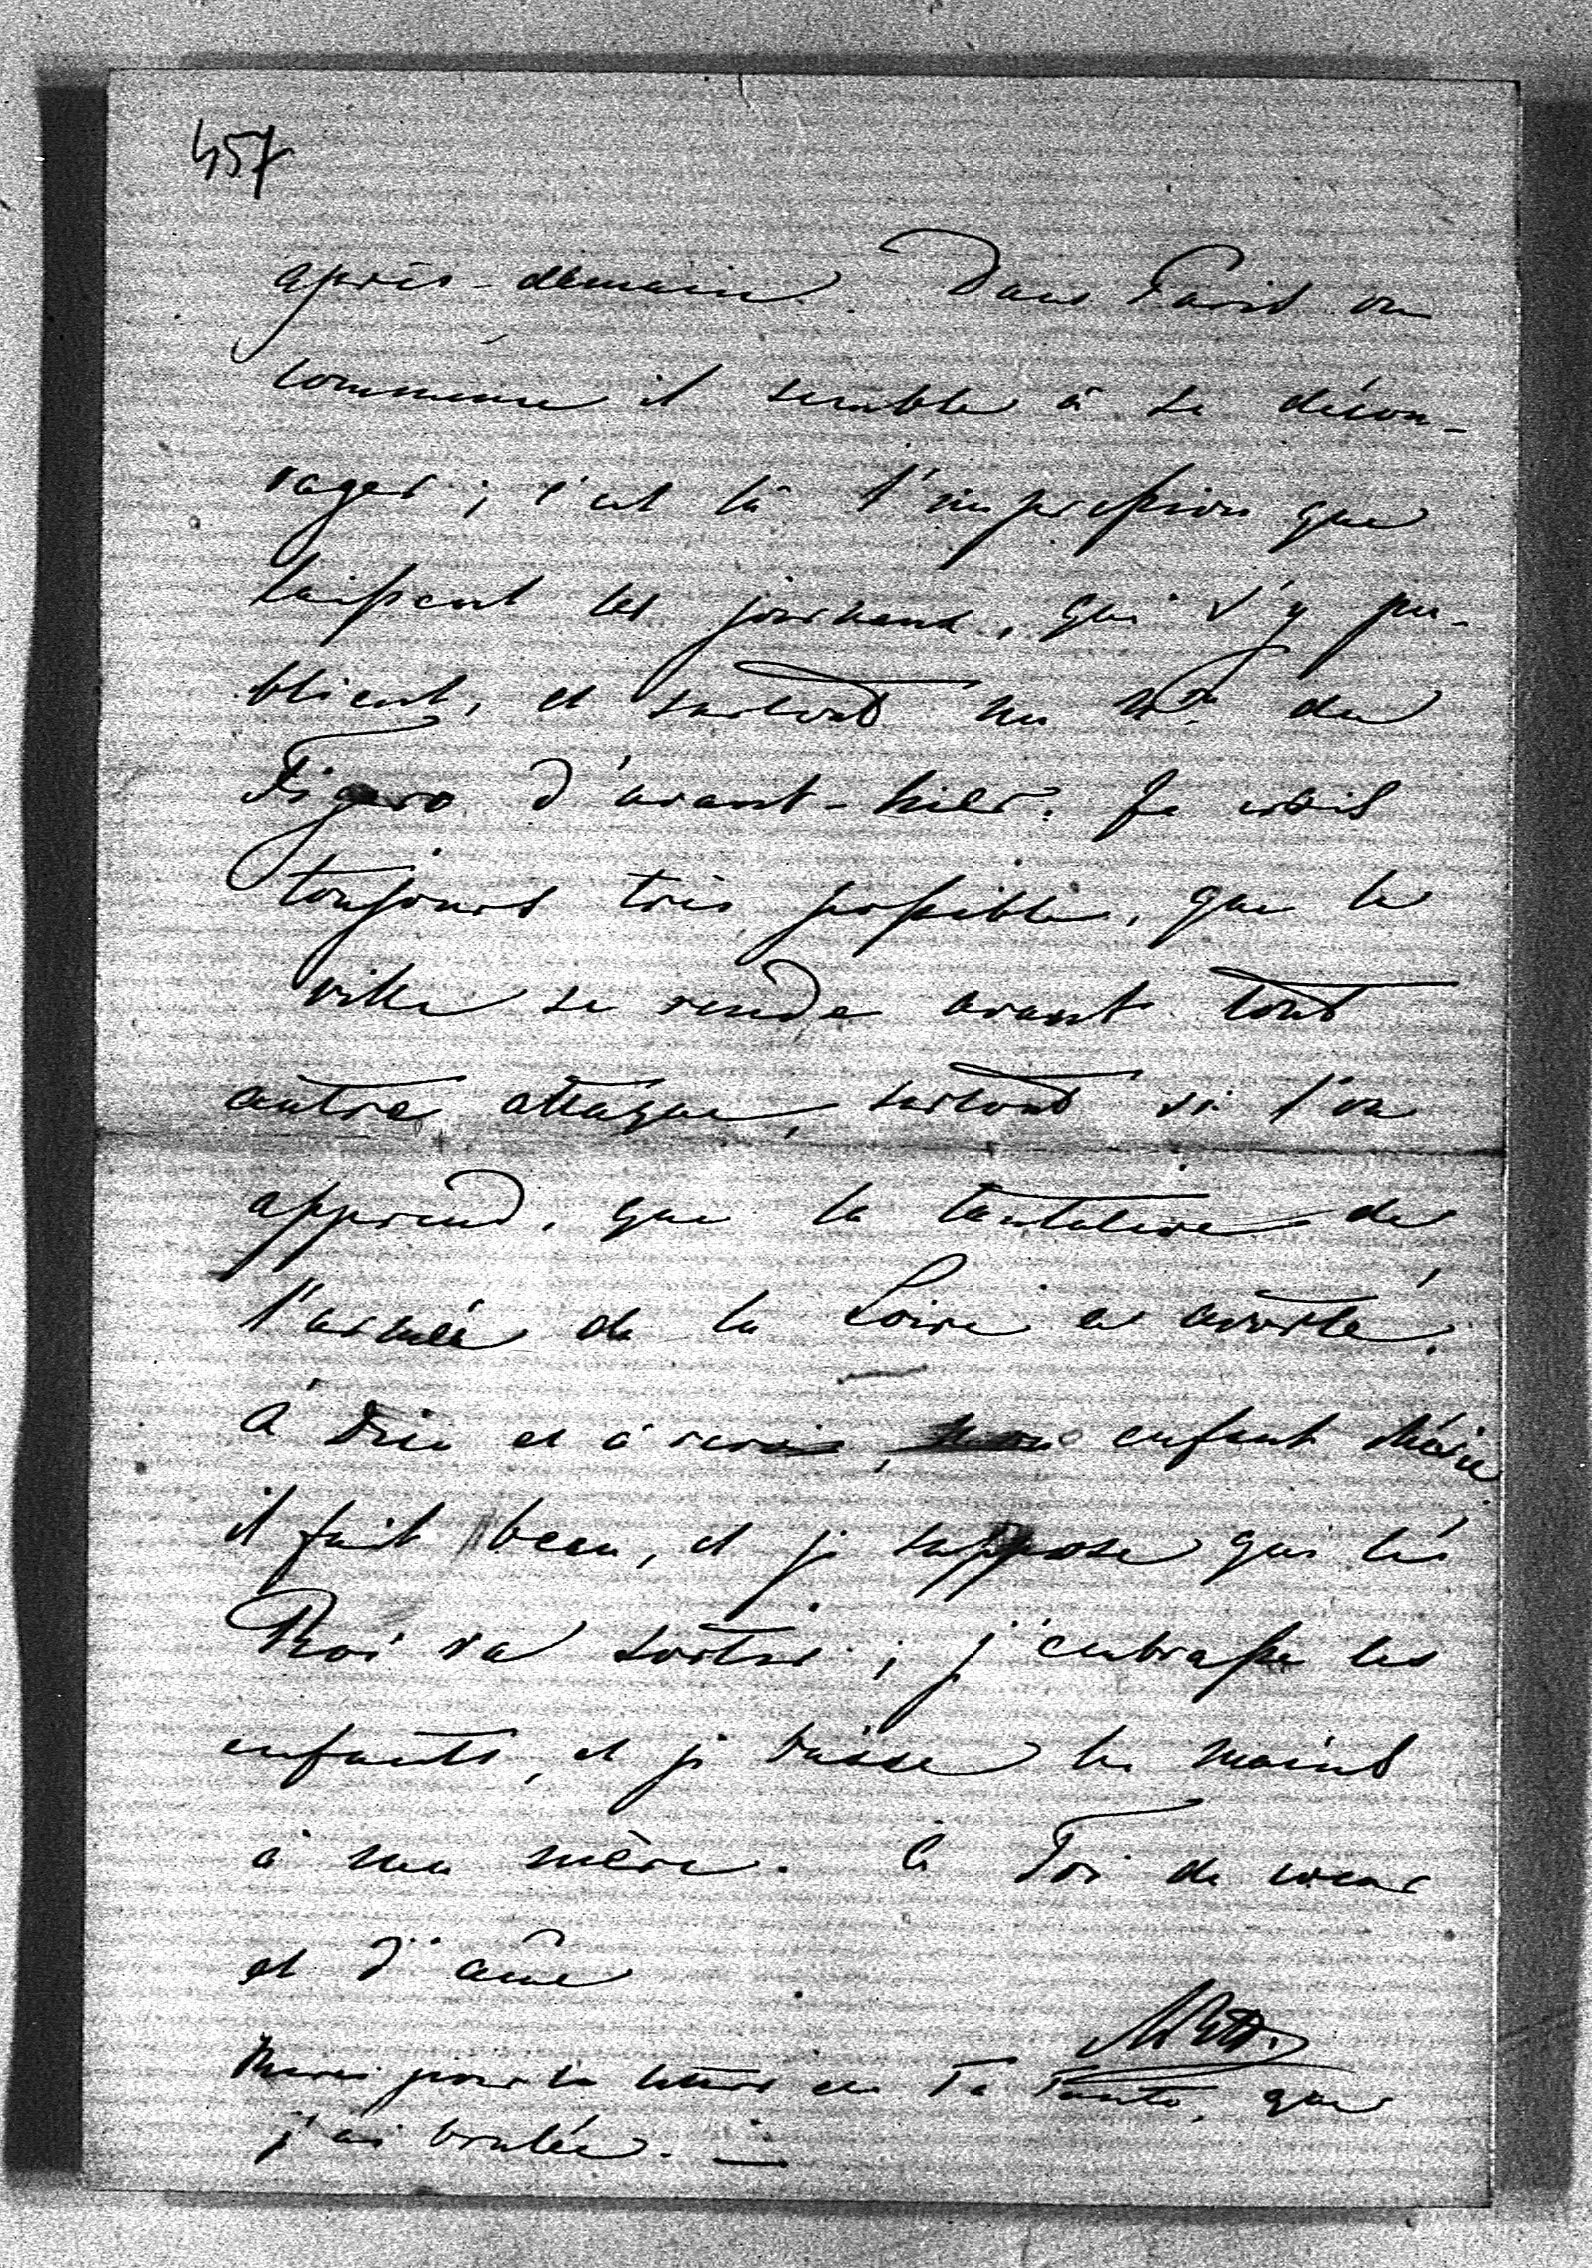 457
après-demain. Dans Paris on
commence il semble à se décou-
rager ; c'est là l'impression que
laissent les journaux, qui s'y pu-
blient, et surtout un No du
Figaro d'avant-hier. Je crois
toujours très possible, que la
ville se rende avant tout
autre attaque, surtout si l'on
apprend, que la tentative de
l'armée de la Loire a avorté.
à Dieu et à revoir, mon enfant chérie
il fait beau, et je suppose que le
Roi va sortir ; j'embrasse les
enfants, et je baisse les mains
à ma mère. à Toi de coeur
et d'âme
Merci pour la lettre de Ta Tante, que
j'ai brulée. —